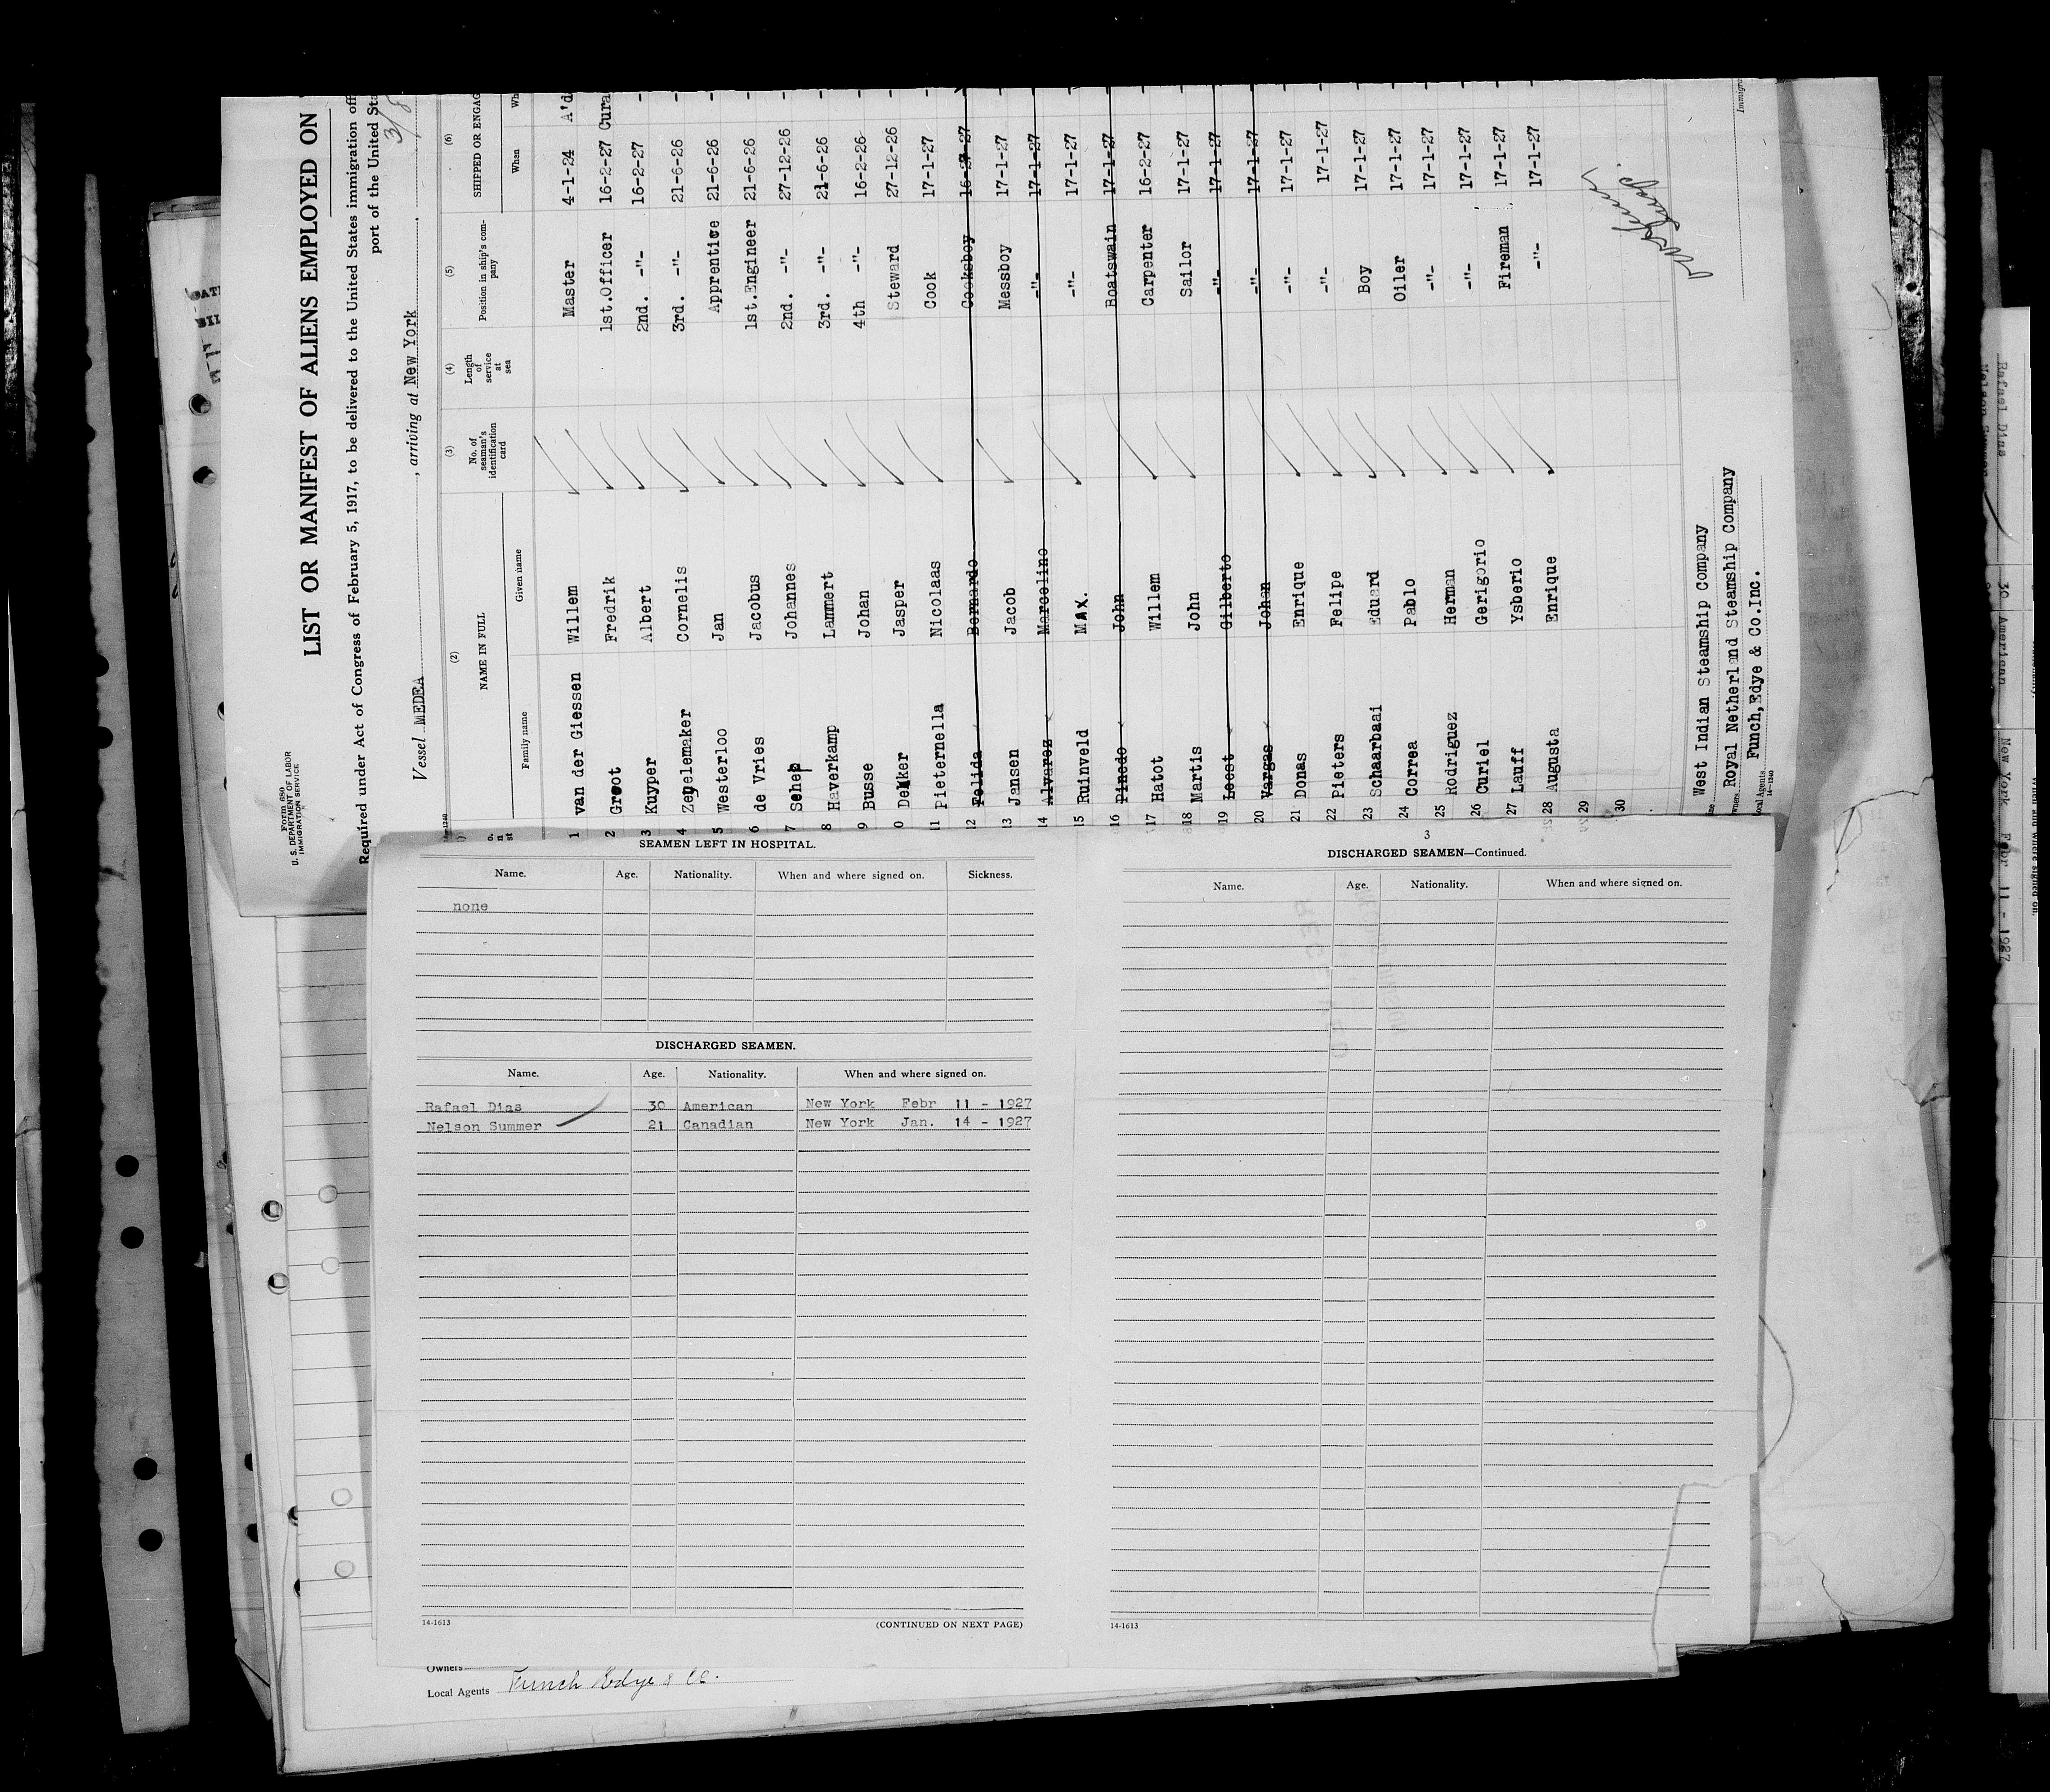 Form 680
U. S. DEPARTMENT OF LABOR
IMMIGRATION SERVICE
LIST OR MANIFEST OF ALIENS EMPLOYED ON
Required under Act of Congress of February 5, 1917, to be delivered to the United States immigration off
port of the United Sta
3/8
Vessel MEDEA, arriving at New York
(2) (3) (4) (5) (6)
NAME IN FULL No. of seaman's identification card Length of service at sea Position in ship's company SHIPPED OR ENGAG
Family name Given name When Wh
1 van der Giessen Willem Master 4-1-24 A'd
2 Groot Fredrik 1st.Officer 16-2-27 Cura
3 Kuyper Albert 2nd. -"- 16-2-27 -
4 Zegelemaker Cornelis 3rd. -"- 21-6-26 -
5 Westerloo Jan Apprentice 21-6-26 -
6 de Vries Jacobus 1st.Engineer 21-6-26 -
7 Schep Johannes 2nd. -"- 27-12-26 -
8 Haverkamp Lammert 3rd. -"- 21-6-26 -
9 Busse Johan 4th -"- 16-2-26 -
0 Dekker Jasper Steward 27-12-26 -
11 Pieternella Nicolaas Cook 17-1-27 -
12 Felida Bernardo Cooksboy
13 Jansen Jacob Messboy 17-1-27 -
14 Alvarez Marcelino -"- 17-1-27 -
15 Ruinveld Max. -"- 17-1-27 -
16 Pinedo John Boatswain 17-1-27 -
17 Hatot Willem Carpenter 16-2-27 -
18 Martis John Sailor 17-1-27 -
19 Leest Gilberto -"- 17-1-27 -
20 Vargas Johan -"- 17-1-27 -
21 Donas Enrique -"- 17-1-27 -
22 Pieters Felipe -"- 17-1-27 -
23 Schaarbaai Eduard Boy 17-1-27 -
24 Correa Pablo Oiler 17-1-27 -
25 Rodriguez Herman -"- 17-1-27 -
26 Curiel Gerigorio -"- 17-1-27 -
27 Lauff Ysberio Fireman 17-1-27 -
28 Augusta Enrique -"- 17-1-27 -
29
30
West Indian Steamship Company
Royal Netherland Steamship Company
Local Agents Funch, Edye & Co.Inc.
14-1240
Immigra
SEAMEN LEFT IN HOSPITAL.
Name. Age. Nationality. When and where signed on. Sickness.
none
DISCHARGED SEAMEN.
Name. Age. Nationality. When and where signed on.
Rafael Dias 30 American New York Febr 11 - 1927
Nelson Summer 21 Canadian New York Jan. 14 - 1927
14-1613
(CONTINUED ON NEXT PAGE)
3
DISCHARGED SEAMEN—Continued.
Name. Age. Nationality. When and where signed on.
14-1613
Owners
Local Agents Funch Edye & Co.
When and where signed on.
Rafael Dias 30 American New York Febr 11 - 1927
Nelson Summer